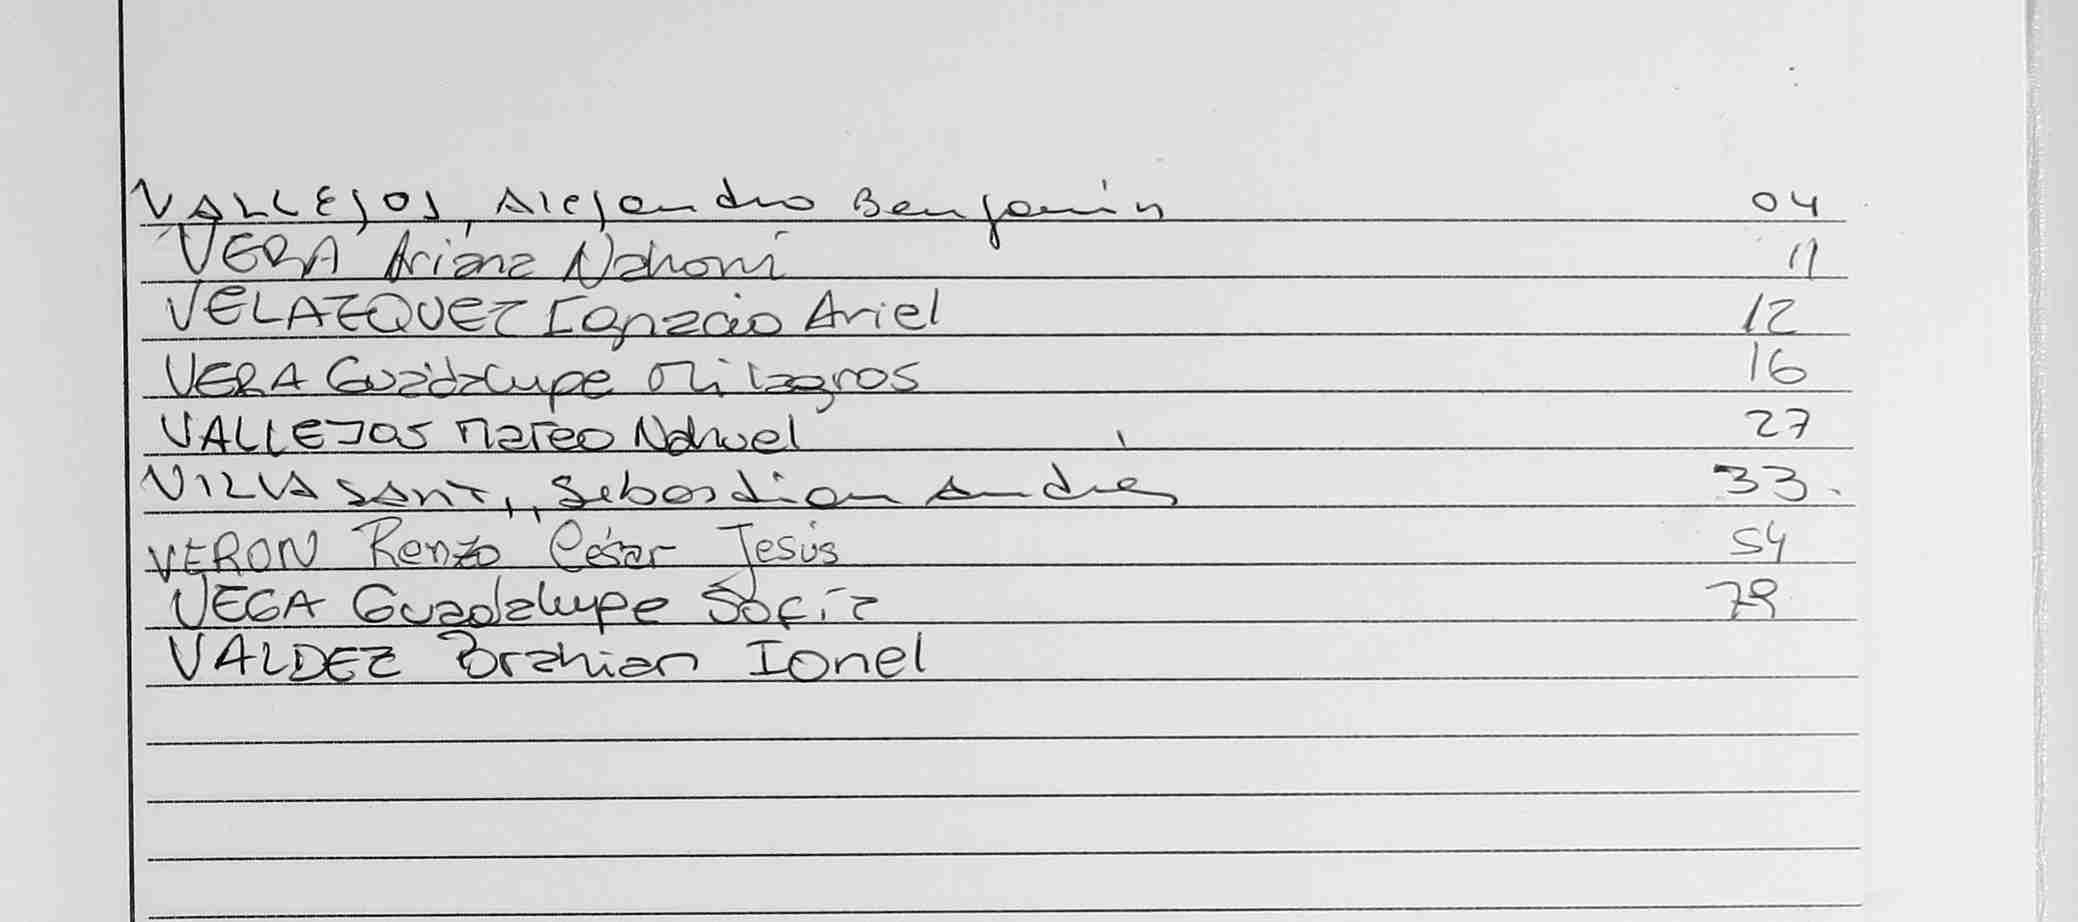 VALLEJOS, Alejandro Benjamín 04
VERA Ariana Nahomi 11
VELAZQUEZ Ignacio Ariel 12
VERA Guadalupe Milagros 16
VALLEJOS Mateo Nahuel 27
VILLASANTI, Sebastian Andrés 33.
VERON Renzo César Jesús 54
VEGA Guadalupe Sofía 79
VALDEZ Brahian Ionel